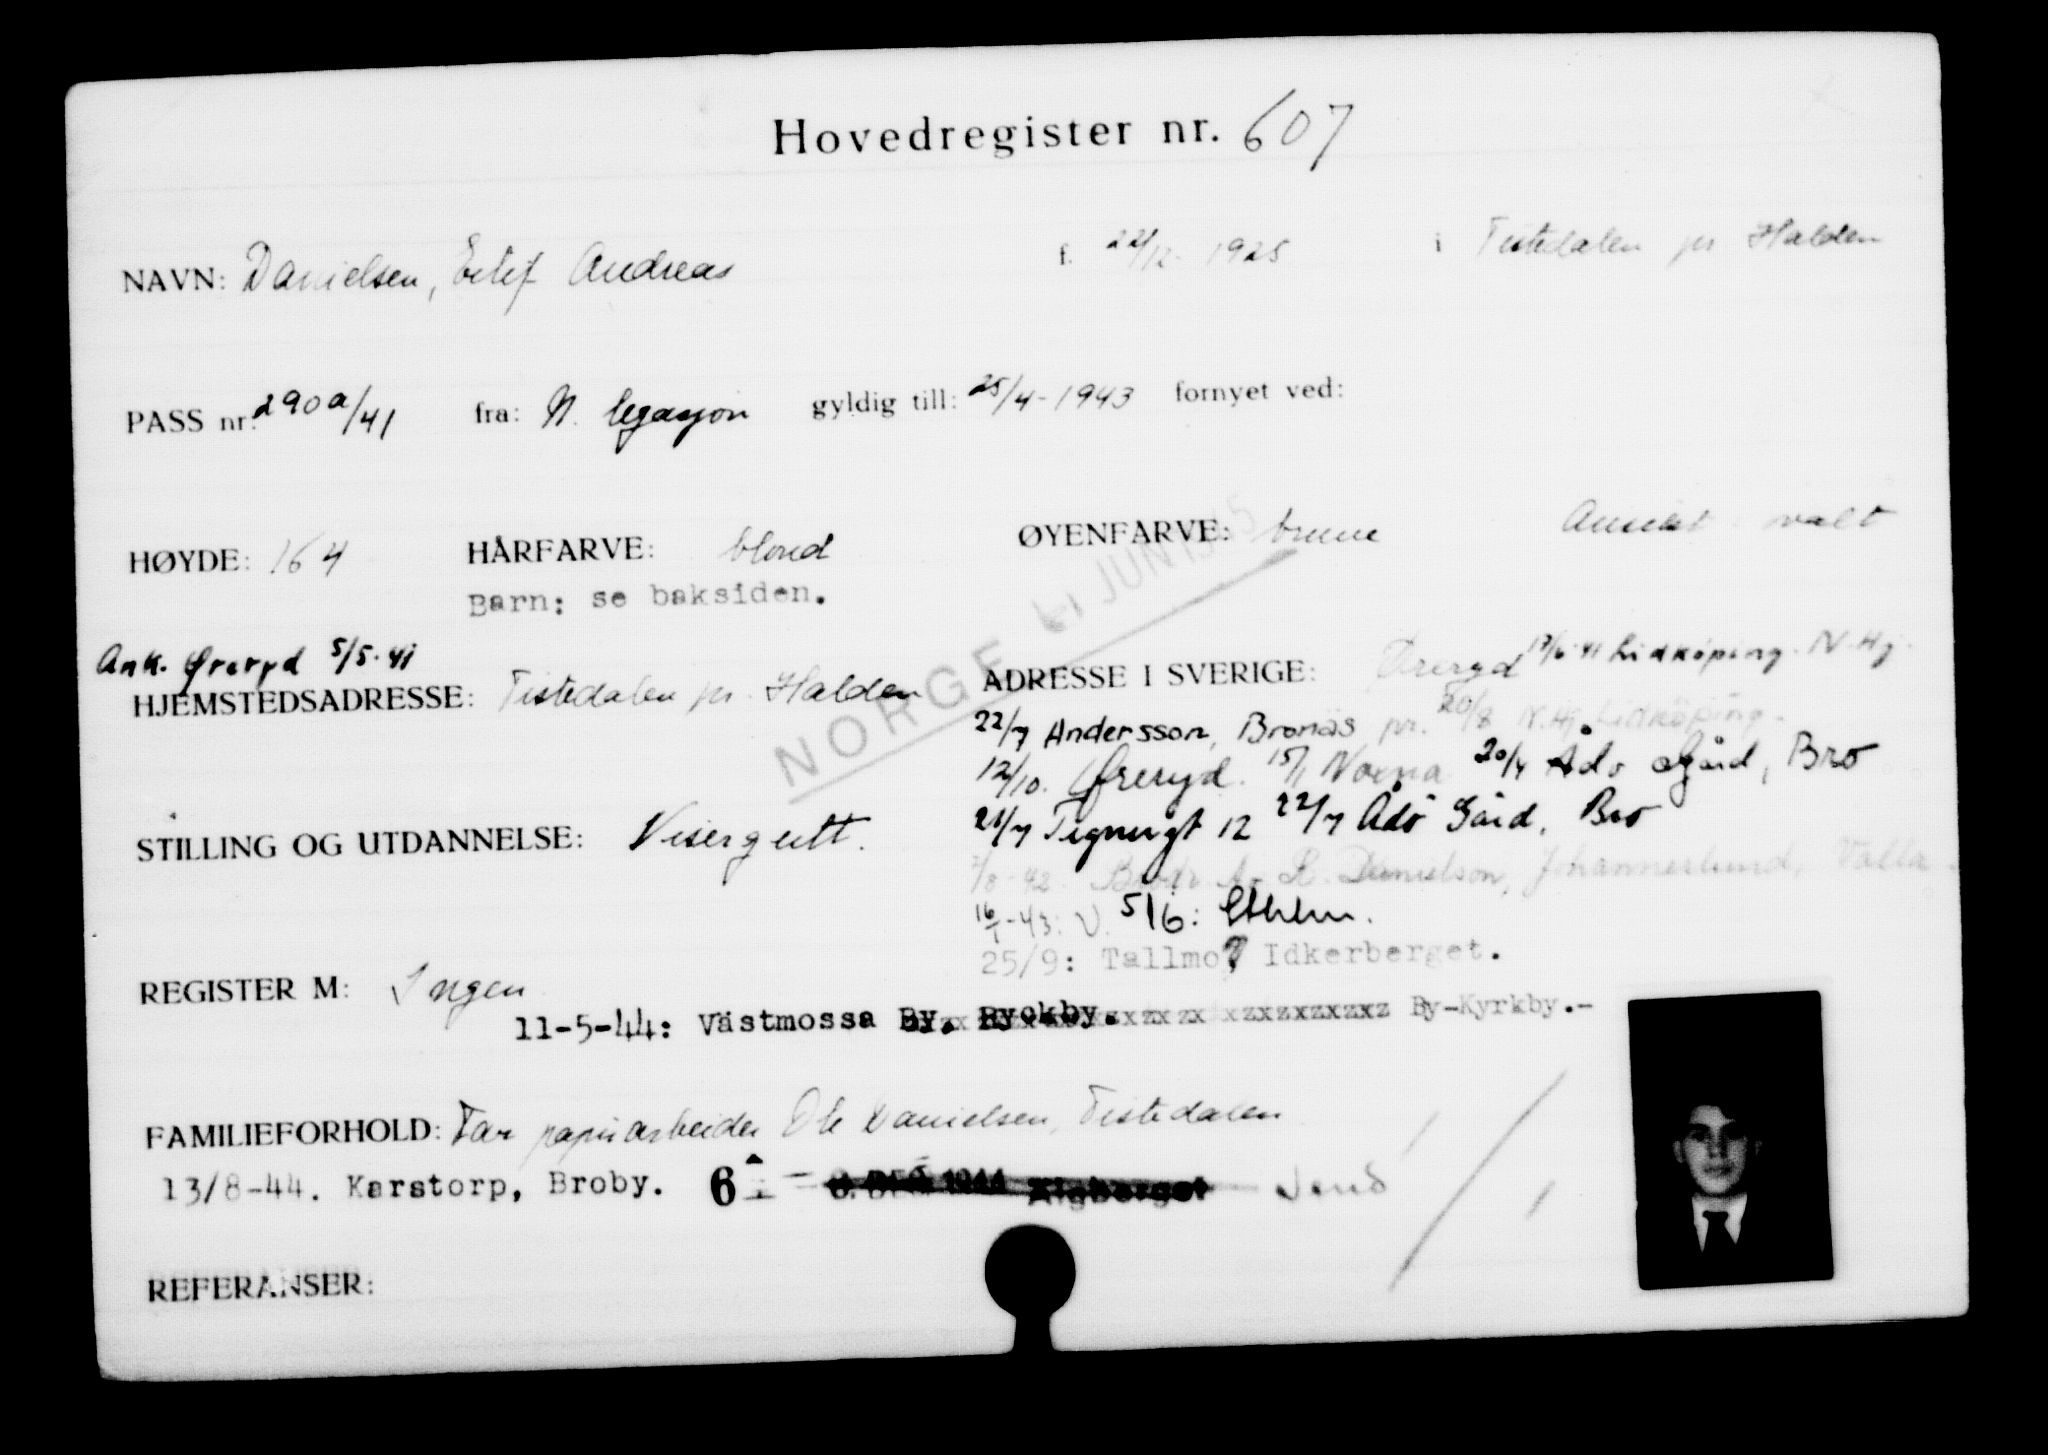 Hovedregister nr. 607
NAVN: Danielsen, Eilif Andreas f. 22/12- 1925 i Tistedalen pr Halden
PASS nr. 290a/41 fra: N. legasjon gyldig till: 25/4-1943 fornyet ved:
HØYDE: 164 HÅRFARVE: blond ØYENFARVE: brune Ansikt ovalt
Barn: se baksiden.
NORGE JUNI
Ank. Øreryd 5/5-41
HJEMSTEDSADRESSE: Tistedalen pr. Halden ADRESSE I SVERIGE: Øreryd 17/6-41 Lidköping. N. Hj.
22/7 Andersson, Bronäs pr. 20/8 N. Hj. Lidköping.
12/10. Øreryd. 15/1 Norna 20/4 Ådö Gård, Bro
21/7 Tegnergt 12 22/7 Ådö Gård, Bro
STILLING OG UTDANNELSE: Visergutt.
7/8-42. R. Danielson, Johanneslund, Valla
16/1-43: V. 5/6: Sthlm.
25/9: Tallmo, Idkerberget.
REGISTER M: Ingen
11-5-44: Västmossa By. Byckby. By-Kyrkby.-
FAMILIEFORHOLD: Far papirarbeider Ole Danielsen, Tistedalen
13/8-44. Karstorp, Broby. 6 1944 Älgberget
REFERANSER: